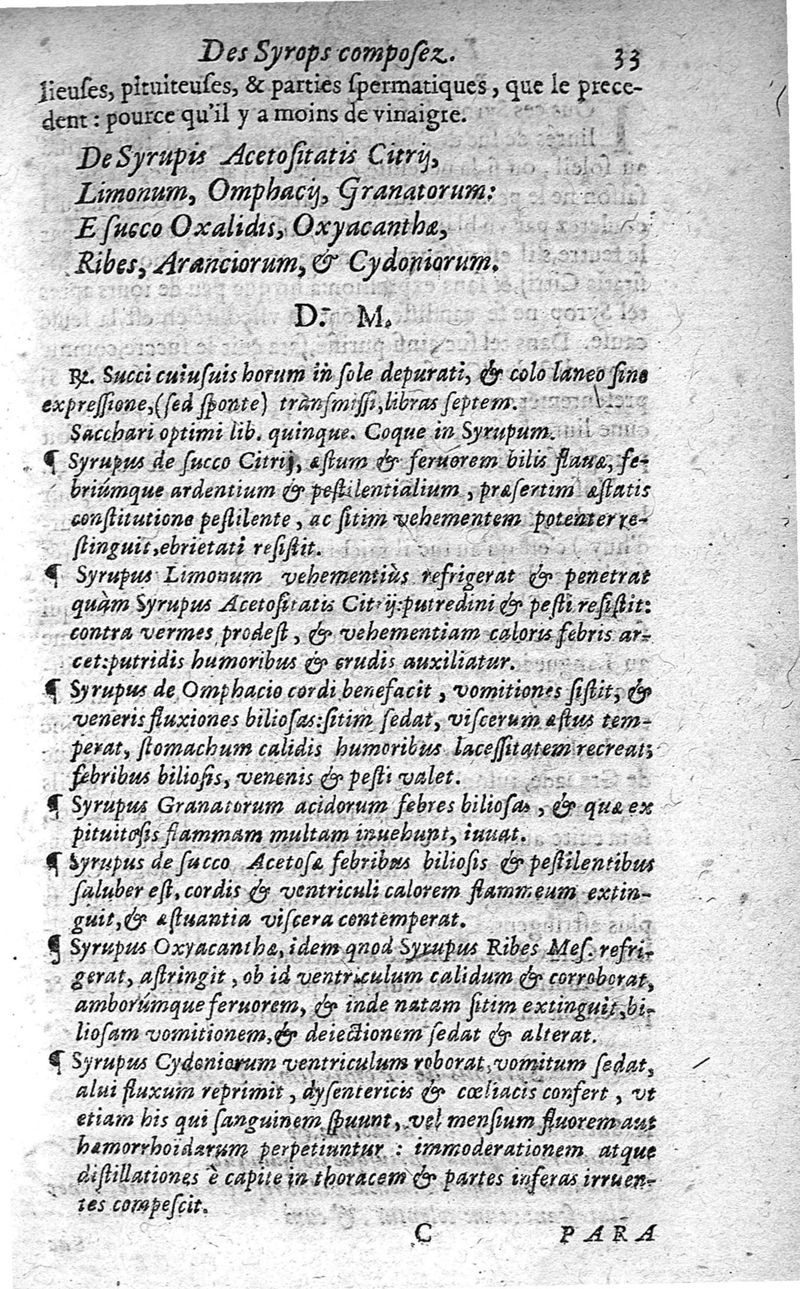 Des Syrops composez. 33
lieuses, pituiteuses, & parties spermatiques, que le prece-
dent : pource qu'il y a moins de vinaigre.
De Syrupis Acetositatis Citrij,
Limonum, Omphacij, Granatorum:
E succo Oxalidis, Oxyacanthæ,
Ribes, Aranciorum, & Cydoniorum.
D. M.
℞. Succi cuiusuis horum in sole depurati, & colo laneo sine
expressione,(sed sponte) trānsmissi,libras septem.
Sacchari optimi lib. quinque. Coque in Syrupum.
¶ Syrupus de succo Citrij, æstum & feruorem bilis flauæ, fe-
briúmque ardentium & pestilentialium, præsertim æstatis
constitutione pestilente, ac sitim vehementem potenter re-
stinguit,ebrietati resistit.
¶ Syrupus Limonum vehementiùs refrigerat & penetrat
quàm Syrupus Acetositatis Citrij:putredini & pesti resistit:
contra vermes prodest, & vehementiam caloris febris ar-
cet:putridis humoribus & crudis auxiliatur.
¶ Syrupus de Omphacio cordi benefacit, vomitiones sistit, &
veneris fluxiones biliosas:sitim sedat, viscerum æstus tem-
perat, stomachum calidis humoribus lacessitatem recreat;
febribus biliosis, venenis & pesti valet.
¶ Syrupus Granatorum acidorum febres biliosas, & quæ ex
pituitosis flammam multam inuehunt, iuuat.
¶ Syrupus de succo Acetosæ febribus biliosis & pestilentibus
saluber est, cordis & ventriculi calorem flammeum extin-
guit,& æstuantia viscera contemperat.
¶ Syrupus Oxyacanthæ,idem qnod Syrupus Ribes Mes. refri-
gerat, astringit, ob id ventriculum calidum & corroborat,
amborúmque feruorem, & inde natam sitim extinguit,bi-
liosam vomitionem,& deiectionem sedat & alterat.
¶ Syrupus Cydoniorum ventriculum roborat,vomitum sedat,
alui fluxum reprimit, dysentericis & cœliacis confert, vt
etiam his qui sanguinem spuunt, vel mensium fluorem aut
hæmorrhoïdarum perpetiuntur : immoderationem atque
distillationes è capite in thoracem & partes inferas irruen-
tes compescit.
C PARA